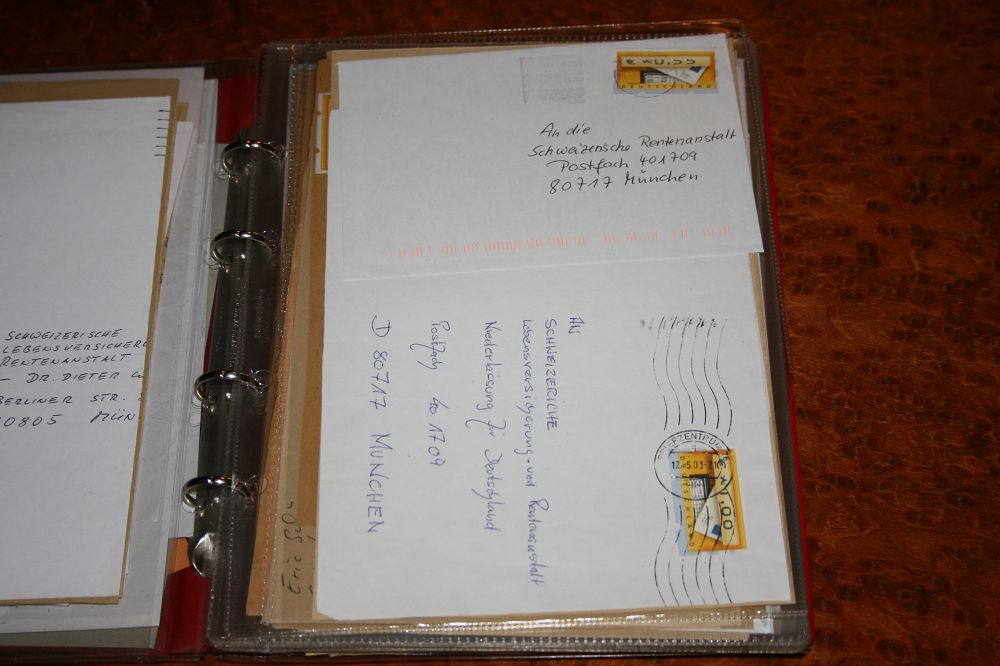 SCHWEIZERISCHE
LEBENSVERSICHERU
RENTENANSTALT
- DR. DIETER
BERLINER STR.
80805 MÜN
€ *0,55
DEUTSCHLAND
An die
Schweizerische Rentenanstalt
Postfach 401709
80717 München
AN
SCHWEIZERICHE
Lebensversicherung- und Rentenanstalt
Niederlassung für Deutschland
Postfach 401709
D 80717 MÜNCHEN
BRIEFZENTRUM
12.-5.03-21
€ *1,00
DEUTSCHLAND
Eric